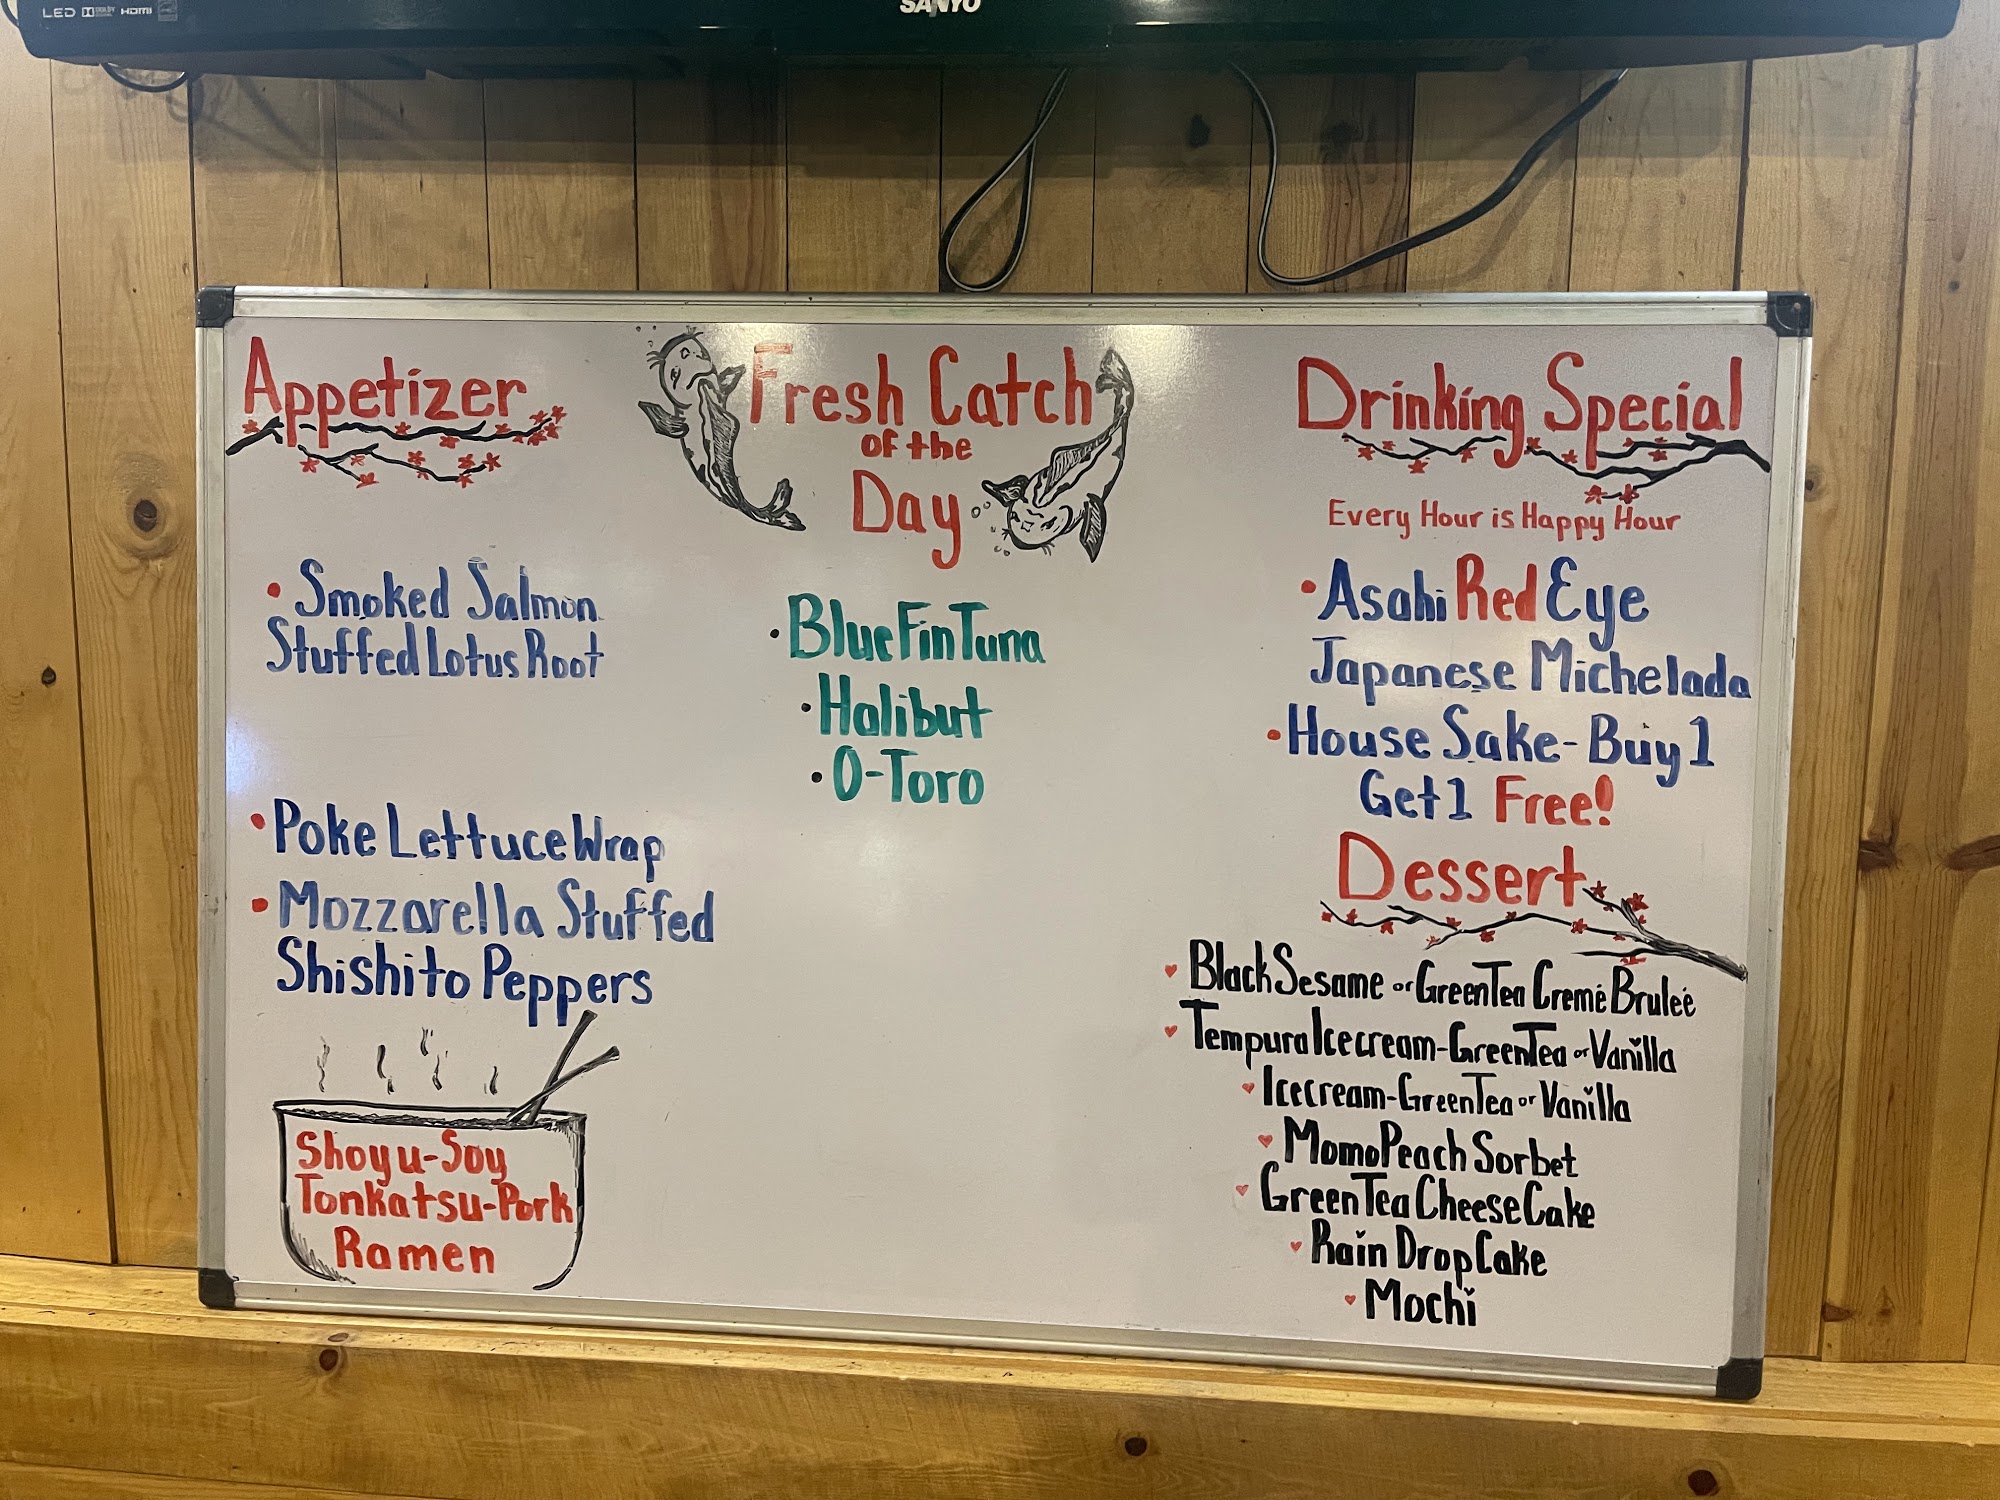 LED DOLBY HDMI
SANYO
Appetizer
• Smoked Salmon
Stuffed Lotus Root
• Poke Lettuce Wrap
• Mozzarella Stuffed
Shishito Peppers
Shoyu-Soy
Tonkatsu-Pork
Ramen
Fresh Catch
of the
Day
• Blue Fin Tuna
• Halibut
• O-Toro
Drinking Special
Every Hour is Happy Hour
• Asahi Red Eye
Japanese Michelada
• House Sake-Buy 1
Get 1 Free!
Dessert
♥ Black Sesame or Green Tea Cremé Bruleé
♥ Tempura Icecream-Green Tea or Vanilla
♥ Icecream-Green Tea or Vanilla
♥ Momo Peach Sorbet
♥ Green Tea Cheese Cake
♥ Rain Drop Cake
♥ Mochi